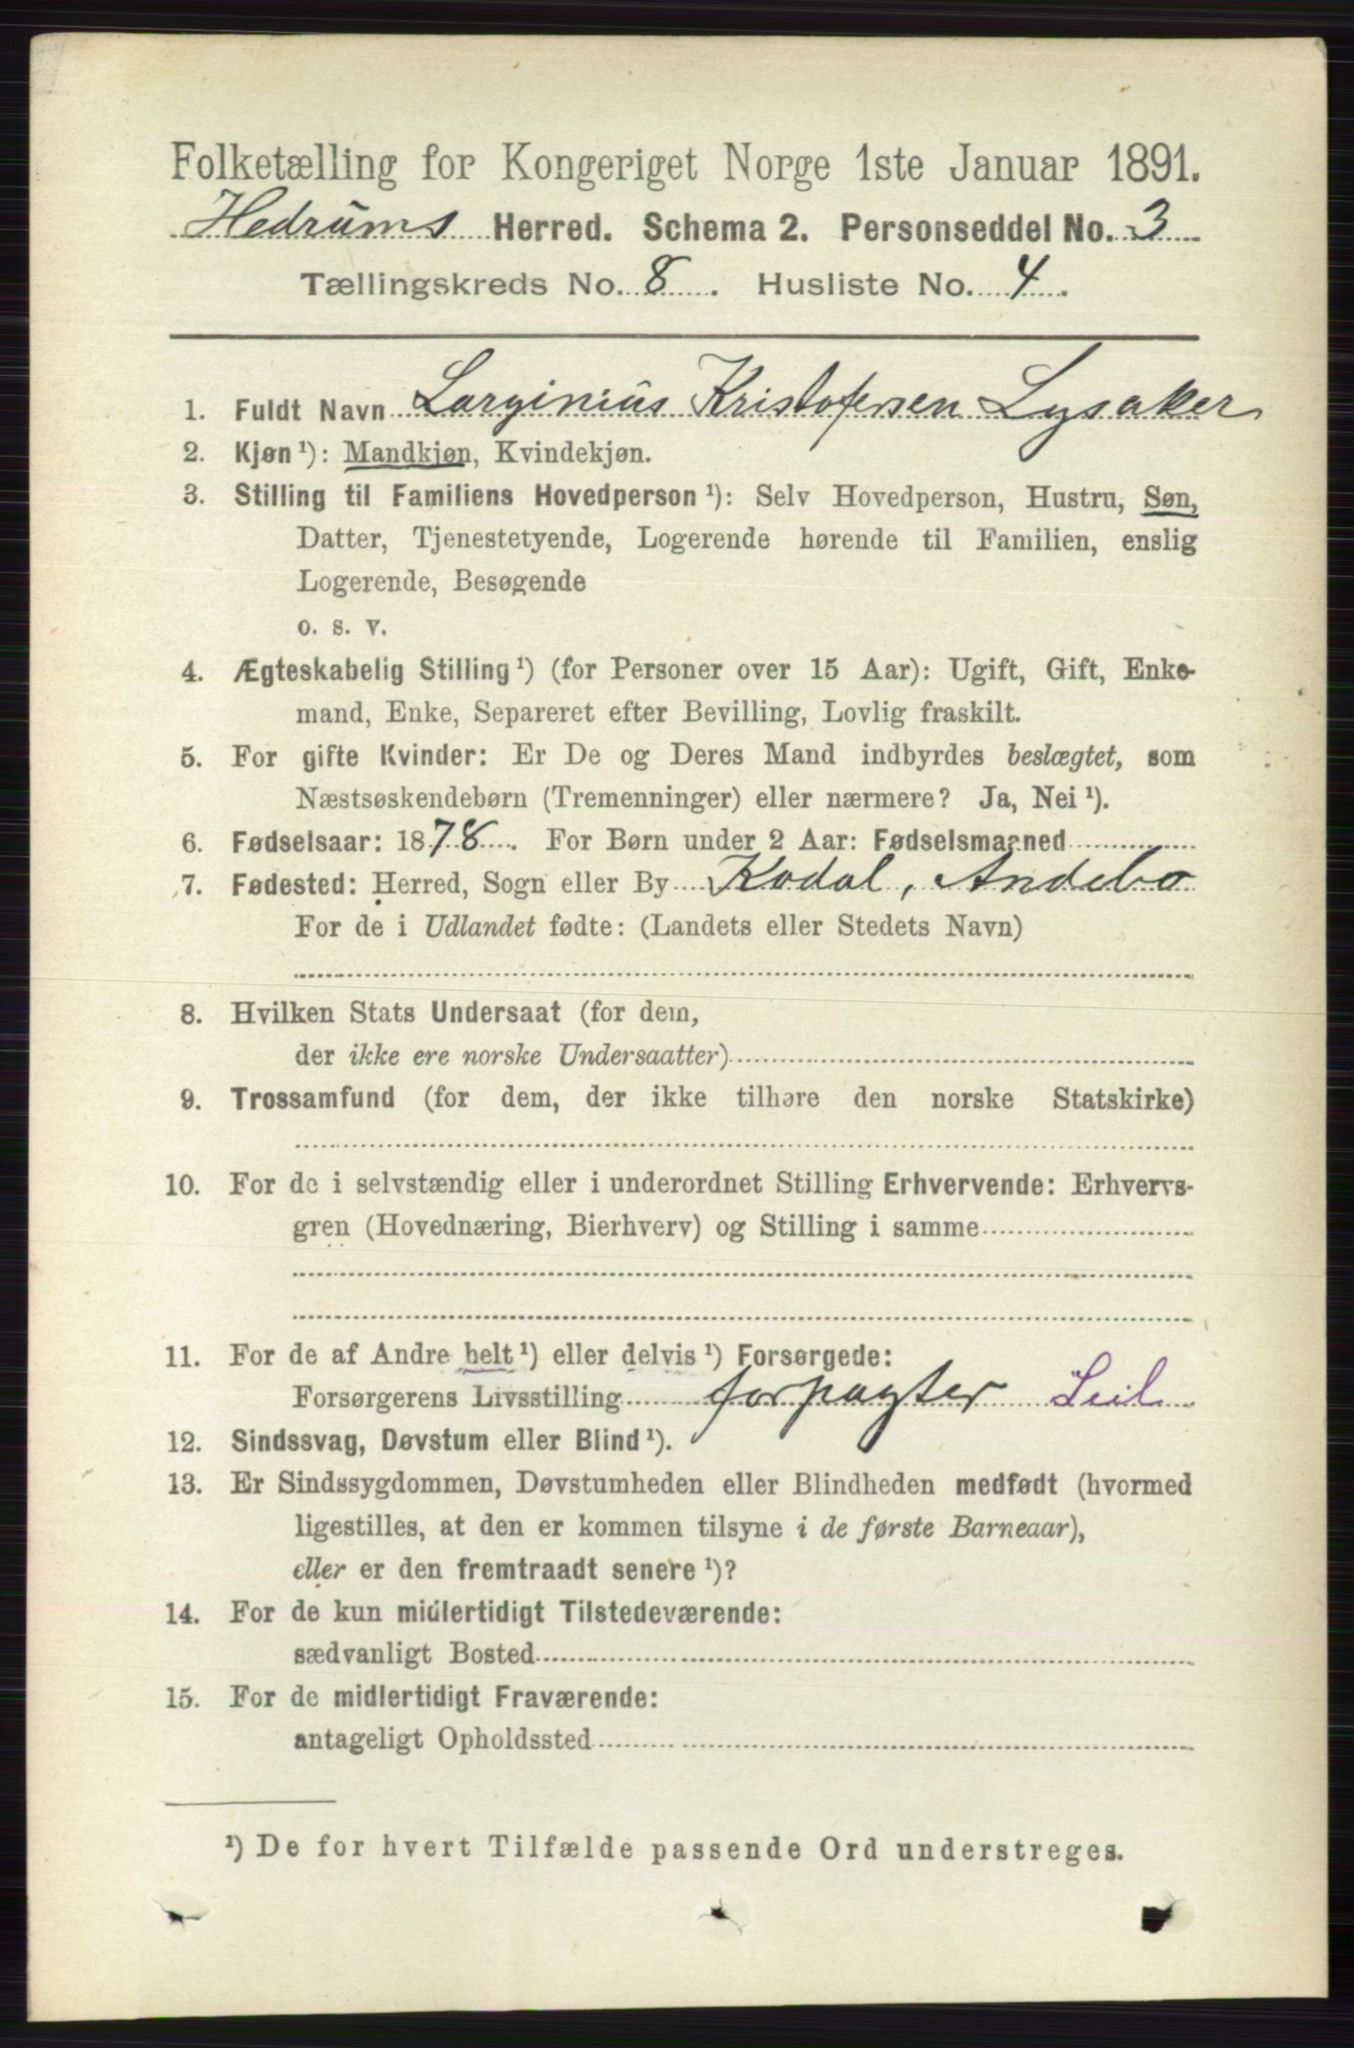 Folketælling for Kongeriget Norge 1ste Januar 1891.
Hedrums Herred. Schema 2. Personseddel No. 3
Tællingskreds No. 8. Husliste No. 4.
1. Fuldt Navn Larginius Kristofersen Lysaker
2. Kjøn ¹): Mandkjøn, Kvindekjøn.
3. Stilling til Familiens Hovedperson ¹): Selv Hovedperson, Hustru, Søn,
Datter, Tjenestetyende, Logerende hørende til Familien, enslig
Logerende, Besøgende
o. s. v.
4. Ægteskabelig Stilling ¹) (for Personer over 15 Aar): Ugift, Gift, Enke-
mand, Enke, Separeret efter Bevilling, Lovlig fraskilt.
5. For gifte Kvinder: Er De og Deres Mand indbyrdes beslægtet, som
Næstsøskendebørn (Tremenninger) eller nærmere? Ja, Nei ¹).
6. Fødselsaar: 1878. For Børn under 2 Aar: Fødselsmaaned
7. Fødested: Herred, Sogn eller By Kodal, Andebo
For de i Udlandet fødte: (Landets eller Stedets Navn)
8. Hvilken Stats Undersaat (for dem,
der ikke ere norske Undersaatter)
9. Trossamfund (for dem, der ikke tilhøre den norske Statskirke)
10. For de i selvstændig eller i underordnet Stilling Erhvervende: Erhvervs-
gren (Hovednæring, Bierhverv) og Stilling i samme
11. For de af Andre helt ¹) eller delvis ¹) Forsørgede:
Forsørgerens Livsstilling forpagter Leil
12. Sindssvag, Døvstum eller Blind ¹).
13. Er Sindssygdommen, Døvstumheden eller Blindheden medfødt (hvormed
ligestilles, at den er kommen tilsyne i de første Barneaar),
eller er den fremtraadt senere ¹)?
14. For de kun midlertidigt Tilstedeværende:
sædvanligt Bosted
15. For de midlertidigt Fraværende:
antageligt Opholdssted
¹) De for hvert Tilfælde passende Ord understreges.